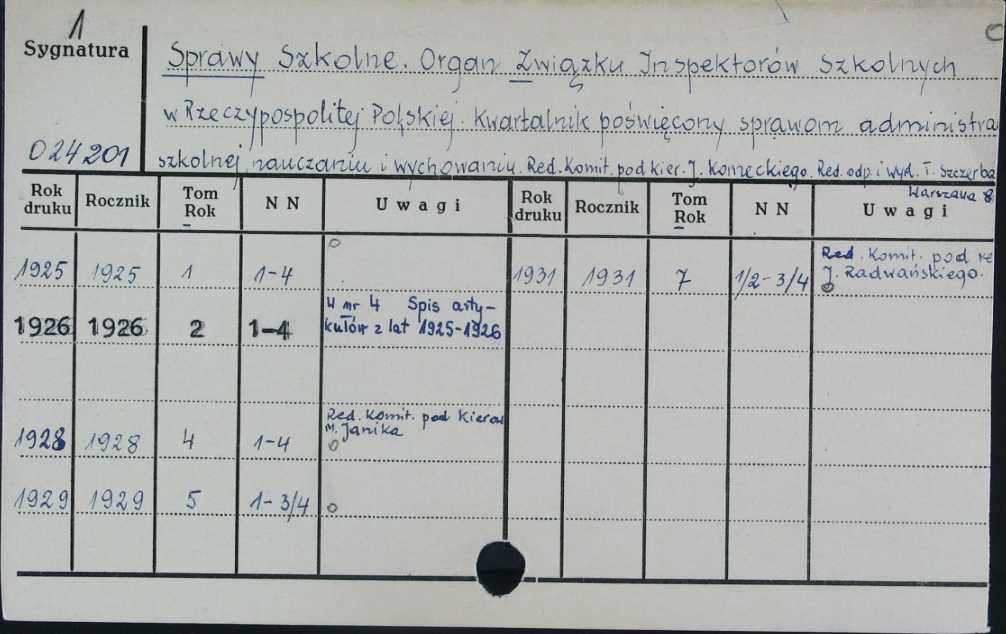 1
Sygnatura
Sprawy Szkolne. Organ Związku Inspektorów Szkolnych
w Rzeczypospolitej Polskiej. Kwartalnik poświęcony sprawom administra
024201
szkolnej, nauczaniu i wychowaniu. Red. Komit. pod kier. J. Koneckiego. Red. odp. i wyd. T. Szczerba
Warszawa 8
Rok druku Rocznik Tom Rok N N Uwagi Rok druku Rocznik Tom Rok N N Uwagi
1925 1925 1 1-4 1931 1931 7 1/2-3/4 Red. Komit. pod
J. Radwańskiego.
1926 1926 2 1-4 W nr 4 Spis arty-
kułów z lat 1925-1926
1928 1928 4 1-4 Red. Komit. pod Kierow
M. Janika
1929 1929 5 1-3/4